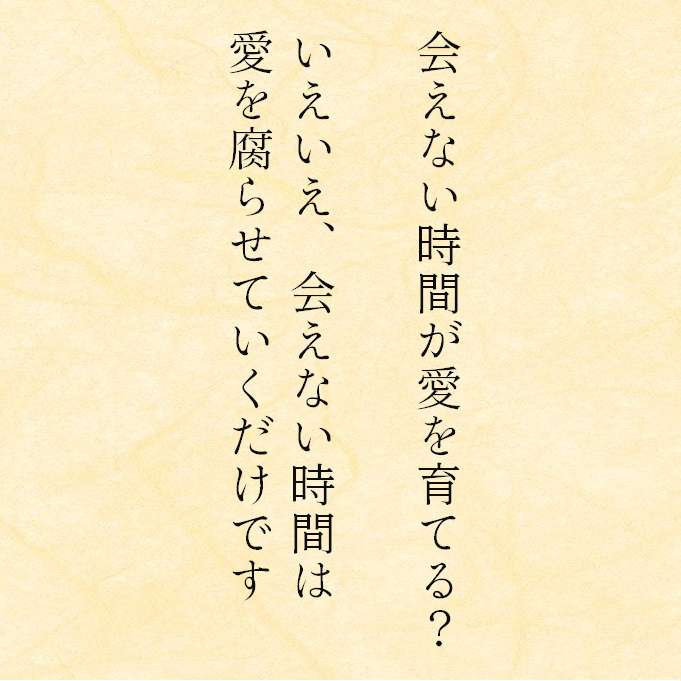 会えない時間が愛を育てる？
いえいえ、会えない時間は
愛を腐らせていくだけです